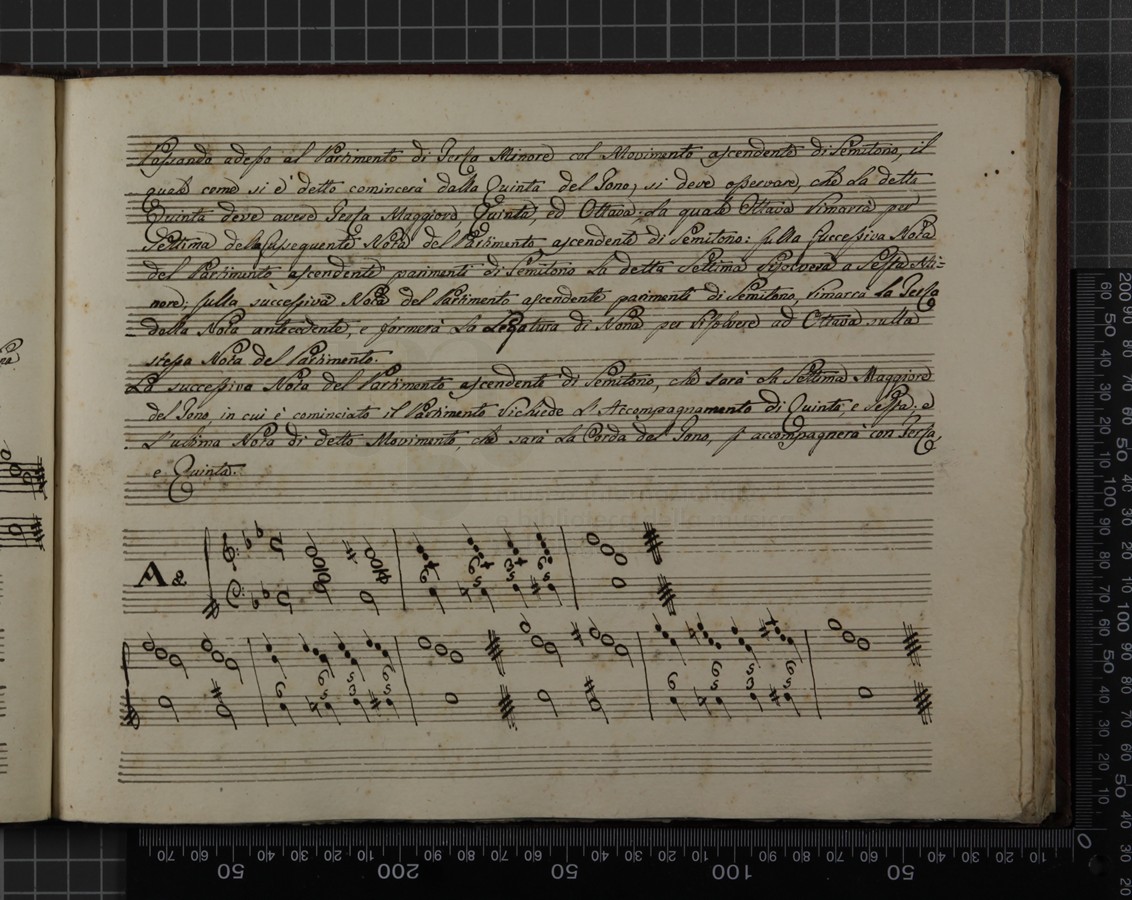 Passando adesso al Partimento di Terza Minore col Movimento ascendente di Semitono, il
quale come si è detto comincerà dalla Quinta del Tono, si deve osservare, che la detta
Quinta deve avere Terza Maggiore, Quinta, ed Ottava; la quale Ottava rimarrà per
Settima della susseguente Nota del Partimento ascendente di Semitono: sulla successiva Nota
del Partimento ascendente parimenti di Semitono la detta Settima risolverà a Sesta Mi=
nore; sulla successiva Nota del Partimento ascendente parimenti di Semitono, rimarrà la Terza
dalla Nota antecedente, e formerà la Legatura di Nona per risolvere ad Ottava sulla
stessa Nota del Partimento.
La successiva Nota del Partimento ascendente di Semitono, che sarà la Settima Maggiore
del Tono, in cui è cominciato il Partimento richiede l'Accompagnamento di Quinta, e Sesta; e
l'ultima Nota di detto Movimento, che sarà la Corda del Tono, s'accompagnerà con Terza,
e Quinta.
A &
6 6 5 5 3 6 5
6 6 5 5 3 6 5 6 6 5 5 3 6 5